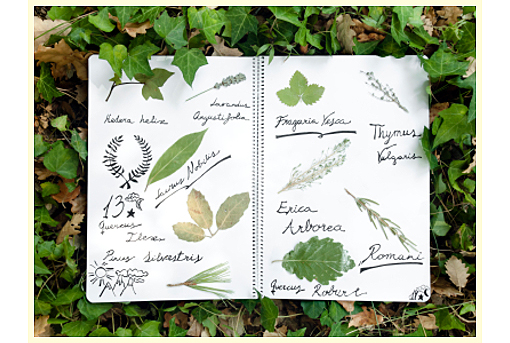 Hedera helix
Lavandula
Angustifolia
Laurus Nobilis
13
Quercus
Ilexes
Pinus Silvestris
Fragaria Vesca
Thymus
Vulgaris
Erica
Arborea
Romani
Quercus Robert